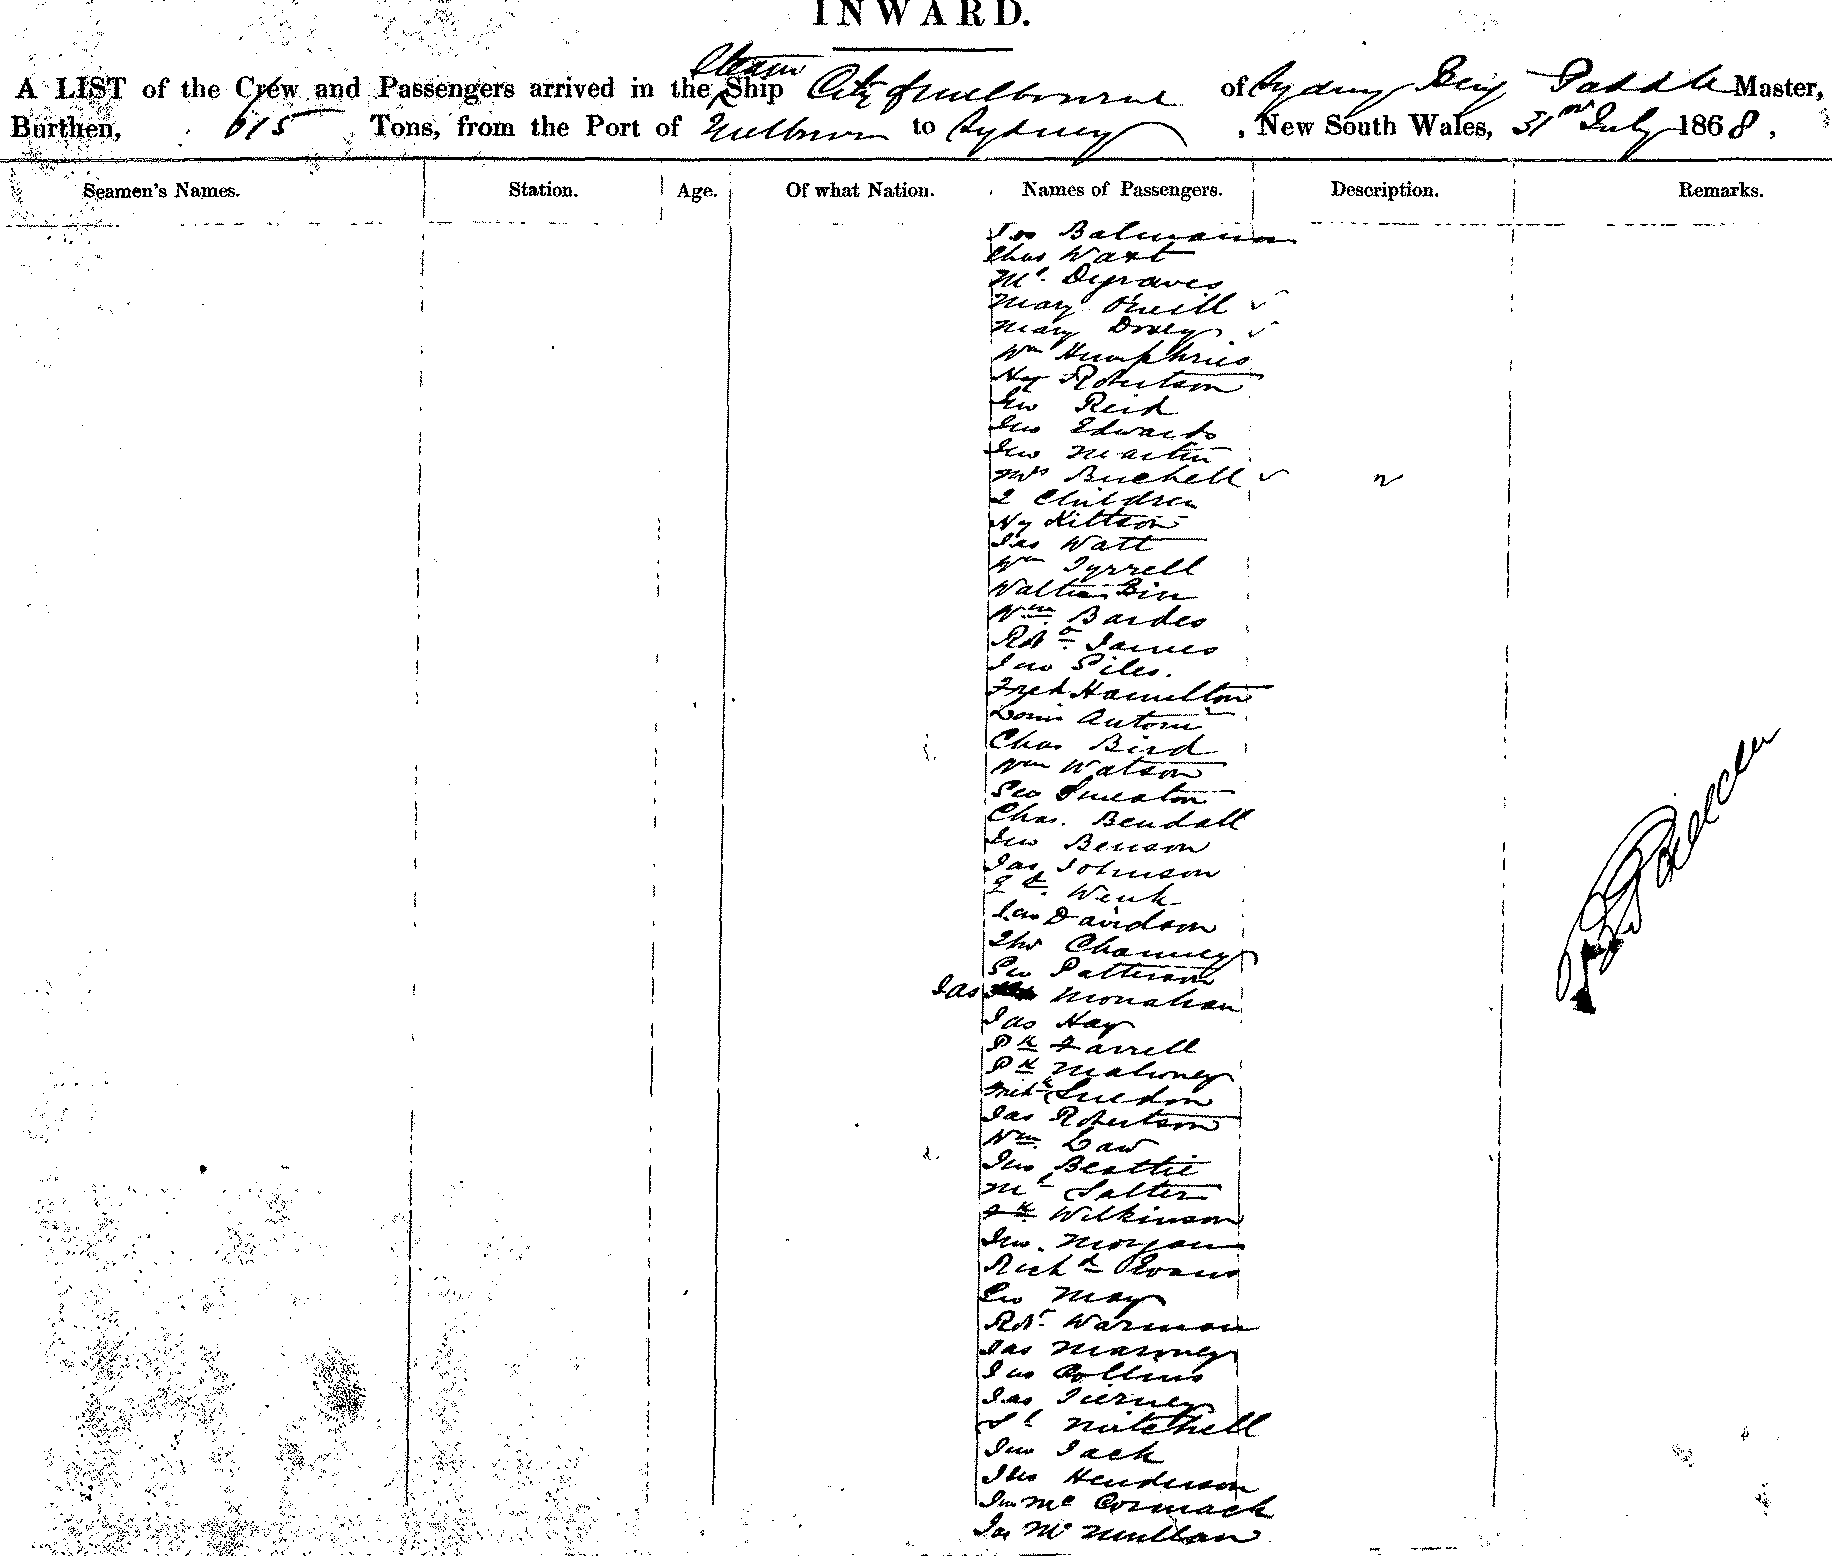 INWARD.
Steam
A LIST of the Crew and Passengers arrived in the Ship City of Melbourne of Sydney Master,
Burthen, 615 Tons, from the Port of Melbourne to Sydney, New South Wales, 31st July 1868.
Seamen's Names. Station. Age. Of what Nation. Names of Passengers. Description. Remarks.
Balmain
Chas Watt
Mr. Degraves
Mary O'Neill ✓
Mary Dovey ✓
Wm Humphries
Hy Robertson
Geo Reid
Jno Edwards
Jno Martin
Mrs Buchell ✓
2 Children
Hy Kittson
Jas Watt
Wm Tyrrell
Walter Birr
Wm. Bardes
Robt James
Jno Piles.
Fred Hamilton
Louis Antoni
Chas Bird
Wm Watson
Geo Smeaton
Chas. Bendall
Jno Benson
Jas Johnson
Wenk
Jas Davidson
Thos Channey
Geo Patterson
Jas Monahan
Jas Hay
Pk Farrell
Pk Mahoney
Jas Robertson
Wm. Law
Jno Beattie
Mr Salter
Wilkinson
Jno. Morgan
Richd Evans
Geo May
Robt Warman
Jas Maroney
Jas Collins
Jas Tierney
Mitchell
Jno Jack
Jno Henderson
Jno McCormack
Jas McMullan